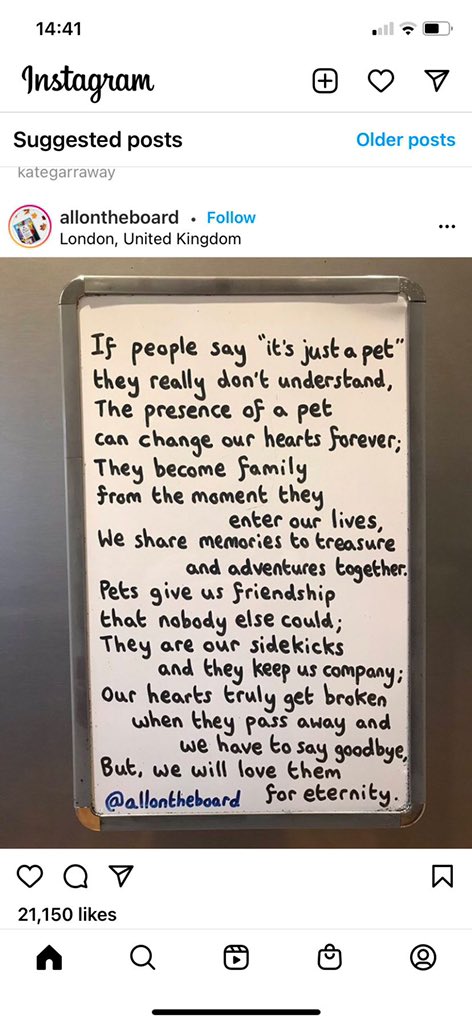 14:41
Instagram
Suggested posts
Older posts
kategarraway
allontheboard • Follow
London, United Kingdom
If people say "it's just a pet"
they really don't understand,
The presence of a pet
can change our hearts forever;
They become family
from the moment they
enter our lives,
We share memories to treasure
and adventures together.
Pets give us friendship
that nobody else could;
They are our sidekicks
and they keep us company;
Our hearts truly get broken
when they pass away and
we have to say goodbye,
But, we will love them
for eternity.
@allontheboard
21,150 likes